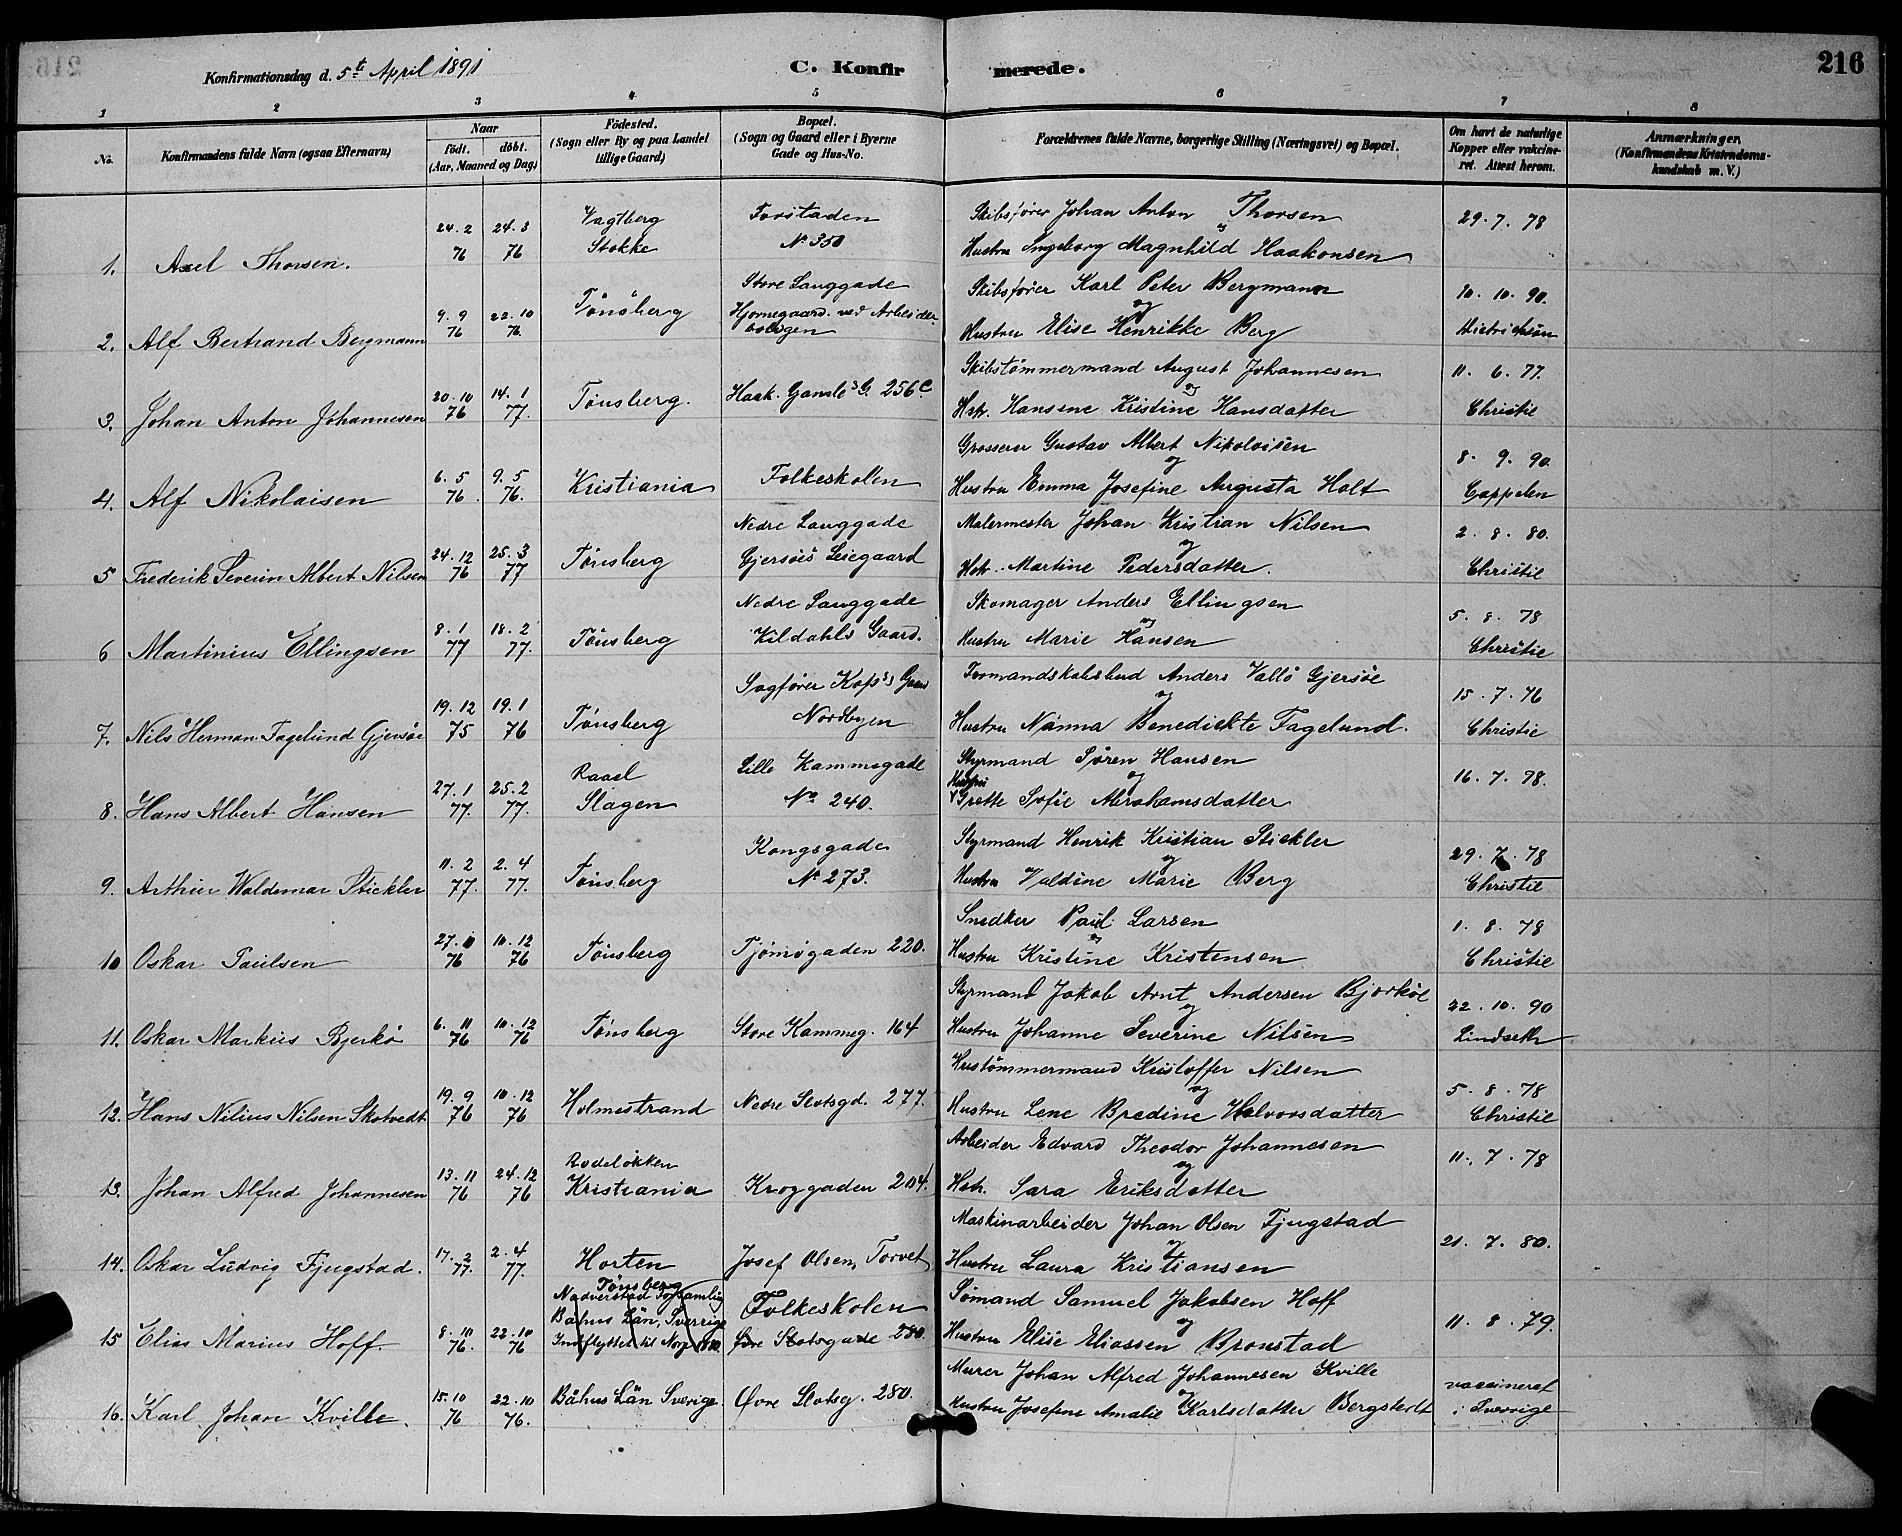 Konfirmationsdag d. 5te April 1891
C. Konfirmerede.
216
1 2 3 4 5 6 7 8
No.
Konfirmandens fulde Navn (ogsaa Efternavn)
Naar
födt. döbt.
(Aar, Maaned og Dag)
Födested.
(Sogn eller By og paa Landet
tillige Gaard)
Bopæl.
(Sogn og Gaard eller i Byerne
Gade og Hus-No.
Forældrenes fulde Navne, borgerlige Stilling (Næringsvei) og Bopæl.
Om havt de naturlige
Kopper eller vakcine-
ret. Attest herom.
Anmærkninger.
(Konfirmandens Kristendoms-
kundskab m. V.)
1. Axel Thorsen. 24.2 76 24.3 76
Vagtberg
Stokke
Forstaden
No 350
Skibsfører Johan Anton Thorsen
og
Hustru Ingeborg Magnhild Haakonsen
29.7.78
2. Alf Bertrand Bergmann 9.9 76 22.10 76.
Tönsberg
Store Langgade
Hjørnegaard. ved Arbeider-
boligen
Skibsfører Karl Peter Bergmann
og
Hustru Elise Henrikke Berg
10.10.90.
Dietrichson
3. Johan Anton Johannesen 20.10 76 14.1 77.
Tönsberg.
Haak. Gamles G. 256c
Skibstömmermand August Johannesen
og
Hstr. Hansene Kristine Hansdatter
11.6.77.
Christie
4. Alf Nikolaisen 6.5 76. 9.5 76.
Kristiania
Folkeskolen
Grosserer Gustav Albert Nikolaisen
og
Hustru Emma Josefine Augusta Holt
8.9.90.
Cappelen
5 Frederik Severin Albert Nilsen 24.12 76 25.3 77
Tönsberg
Nedre Langgade
Gjersöes Leiegaard
Malermester Johan Kristian Nilsen
og
Hstr. Martine Pedersdatter.
2.8.80.
Christie
6 Martinius Ellingsen 8.1 77 18.2 77.
Tönsberg
Nedre Langgade
Kildahls Gaard.
Skomager Anders Ellingsen
og
Hustru Marie Hansen
5.8.78
Christie
7. Nils Herman Fagelund Gjersöe 19.12 75 19.1 76
Tönsberg
Sagfører Kofs's Gaard
Nordbyen
Formandskabsbud Anders Vallö Gjersöe
og
Hustru Nanna Benedickte Fagelund.
15.7.76
Christie
8. Hans Albert Hansen 27.1 77. 25.2 77.
Raael
Slagen
Lille Kammegade
No 240.
Styrmand Søren Hansen
og
Hustru
Grette Sofie Abrahamsdatter
16.7.78.
9. Arthur Waldemar Stickler 11.2 77. 2.4 77.
Tönsberg
Kongsgade
No 273.
Styrmand Henrik Kristian Stickler
og
Hustru Valdine Marie Berg
29.7.78
Christie
10 Oskar Paulsen 27. 76 10.12 76
Tönsberg
Tjömögaden 220.
Snedker Paul Larsen
og
Hustru Kristine Kristensen
1.8.78
Christie
11. Oskar Markus Bjerkö 6.11 76 10.12 76
Tönsberg
Store Kammeg. 164
Styrmand Jakob Arnt Andersen Bjørköe
og
Hustru Johanne Severine Nilsen
22.10.90
Lindseth
12. Hans Nilius Nilsen Skotvedt 19.9 76 10.12 76
Holmestrand
Nedre Slotsgd. 277.
Hustömmermand Kristoffer Nilsen
og
Hustru Lene Bredine Halvorsdatter
5.8.78
Christie
13. Johan Alfred Johannesen 13.11 76 24.12 76
Rodeløkken
Kristiania
Kroggaden 204.
Arbeider Edvard Theodor Johannesen
og
Hstr. Sara Eriksdatter
11.7.78
14. Oskar Ludvig Fjugstad. 17.2 77. 2.4 77.
Horten
Josef Olsen, Torvet
Maskinarbeider Johan Olsen Fjugstad
og
Hustru Laura Kristiansen
21.7.80.
15 Elias Marius Hoff. 8.10 76. 22.10 76
Tönsberg
Båhus Län, Sverrige
Indflyttet til Norge
Folkeskolen
Øvre Slotsgade 280.
Sømand Samuel Jakobsen Hoff
og
Hustru Elise Eliassen Bronstad
11.8.79.
16. Karl Johan Kville. 15.10 76 22.10 76.
Båhus Län Sverige
Øvre Slotsg. 280.
Murer Johan Alfred Johannesen Kville
og
Hustru Josefine Amalie Karlsdatter Bergstedt
vaccineret
i Sverrige